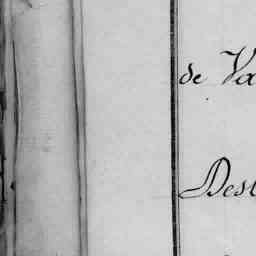 de Va
Dest